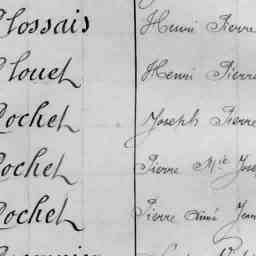 lossais Henri Pierre
louet Henri Pierre
ochet Joseph Pierre
ochet Pierre M^ie Jose
ochet Pierre Aimé Jean